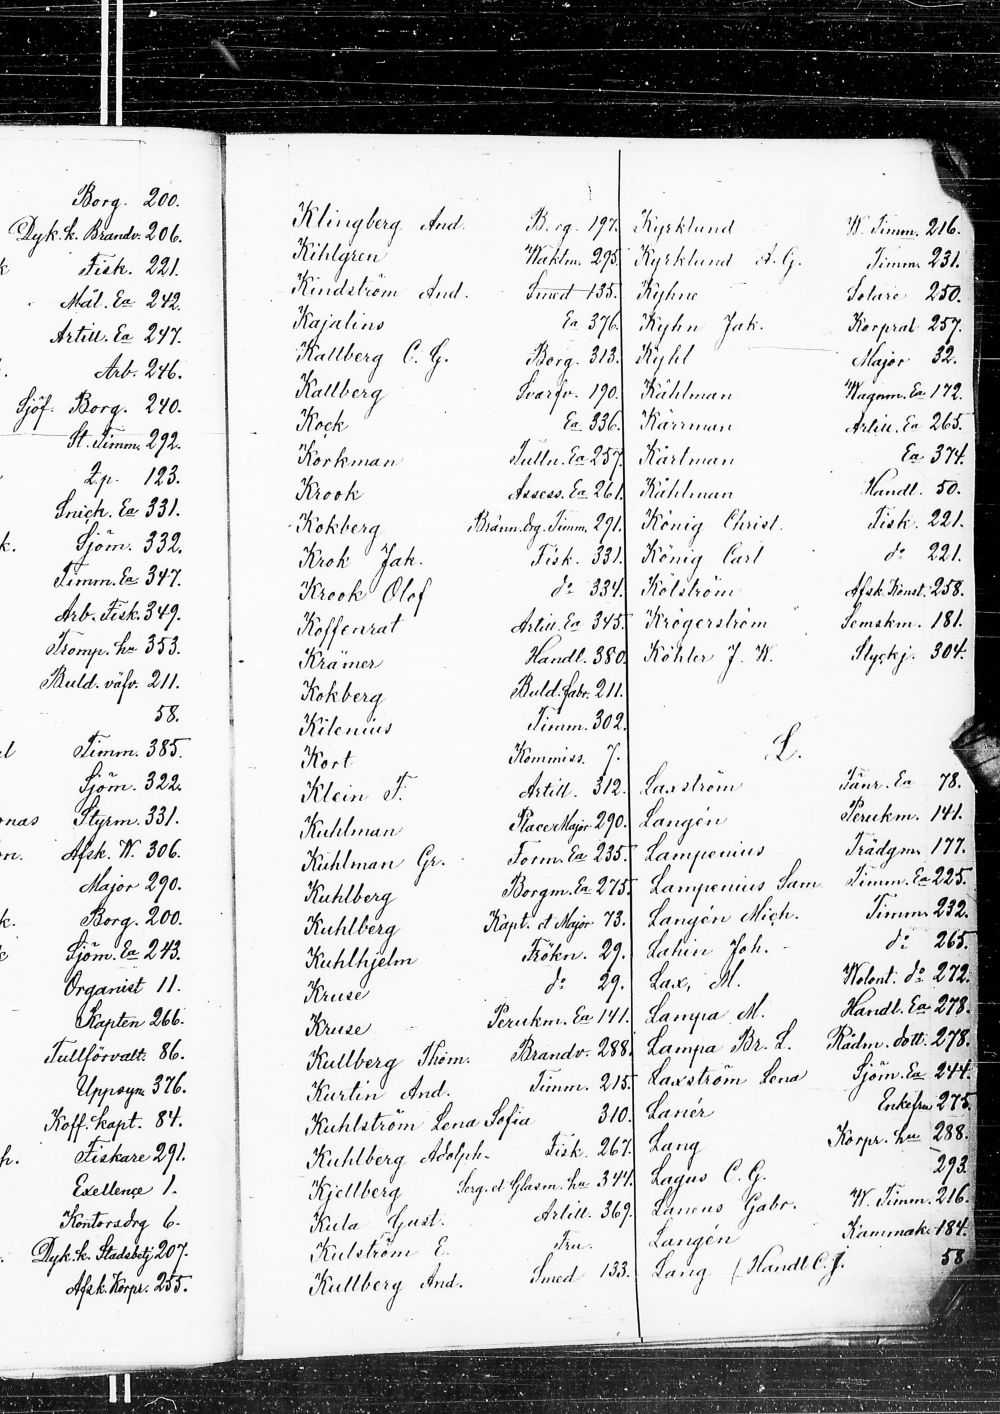 Borg. 200.
Dyk. k. Brandv. 206.
k Fisk. 221.
Mål. Ea 242.
Artill. Ea 247.
Arb. 246.
Sjöf. Borg. 240.
St. Timm. 292.
T.p. 123.
Snick. Ea 331.
k. Sjöm. 332.
Timm. Ea 347.
Arb. Fisk. 349.
Tromp. hu 353.
Buld. väfv. 211.
58.
l Timm. 385.
Sjöm. 322.
onas Styrm. 331.
m. Afsk. V. 306.
Major 290.
k. Borg. 200.
Sjöm. Ea 243.
Organist 11.
Kapten 266.
Tullförvalt. 86.
Uppsyn. 376.
Koff. kapt. 84.
h. Fiskare 291.
Exellence 1.
Kontorsdrg 6.
Dyk. k. Stadsbetj 207.
Afsk. Korpr. 255.
Klingberg And. Borg. 197.
Kihlgren Waktm. 295.
Kindström And. Smed 135.
Kajalins Ea 376.
Kallberg C. G. Borg. 313.
Kallberg Svarfv. 190.
Kock Ea 336.
Korkman Tulln. Ea 257.
Krook Assess. Ea 261.
Kokberg Bränn. drg. Timm. 291.
Krok Jak. Fisk. 331.
Krook Olof do 334.
Koffenrat Artill. Ea 345.
Krämer Handl. 380.
Kokberg Buld. fabr. 211.
Kilenius Timm. 302.
Kort Kommiss. 7.
Klein F. Artill. 312.
Kuhlman Place Major 290.
Kuhlman Gr. Form. Ea 235.
Kuhlberg Borgm. Ea 275.
Kuhlberg Kapt. et Major 73.
Kuhlhjelm Frökn. 29.
Kruse do 29.
Kruse Perukm. Ea 141.
Kullberg Thom. Brandv. 288.
Kurtin And. Timm. 215.
Kuhlström Lena Sofia 310.
Kuhlberg Adolph. Fisk. 267.
Kjellberg Serg. et Glasm. hu 344.
Kula Gust. Artill. 369.
Kulström E. Fru.
Kullberg And. Smed 133.
Kyrklund W. Timm. 216.
Kyrklund A. G. Timm. 231.
Kyhne Solare 250.
Kyhn Jak. Korpral 257.
Kyhl Major 32.
Kählman Wagnm. Ea 172.
Kärrman Artill. Ea 265.
Kärlman Ea 374.
Kählman Handl. 50.
König Christ. Fisk. 221.
König Carl do 221.
Kölström Afsk. Konst. 258.
Krögerström Semskm. 181.
Köhler J. W. Styckj. 304.
L.
Laxström Tånr. Ea 78.
Langén Perukm. 141.
Lampenius Trädgm. 177.
Lampenius Sam Timm. Ea 225.
Langén Mich. Timm. 232.
Lahin Joh. do 265.
Lax, M. Wolont. do 272.
Lampa M. Handl. Ea 278.
Lampa Br. L. Rådm. dott. 278.
Laxström Lena Sjöm. Ea 244.
Lanér Enkefru 275.
Lang Korpr. hu 288.
Lagus C. G. 293.
Laneus Gabr. W. Timm. 216.
Langén Kammak. 184.
Lang (Handl C. J. 58.